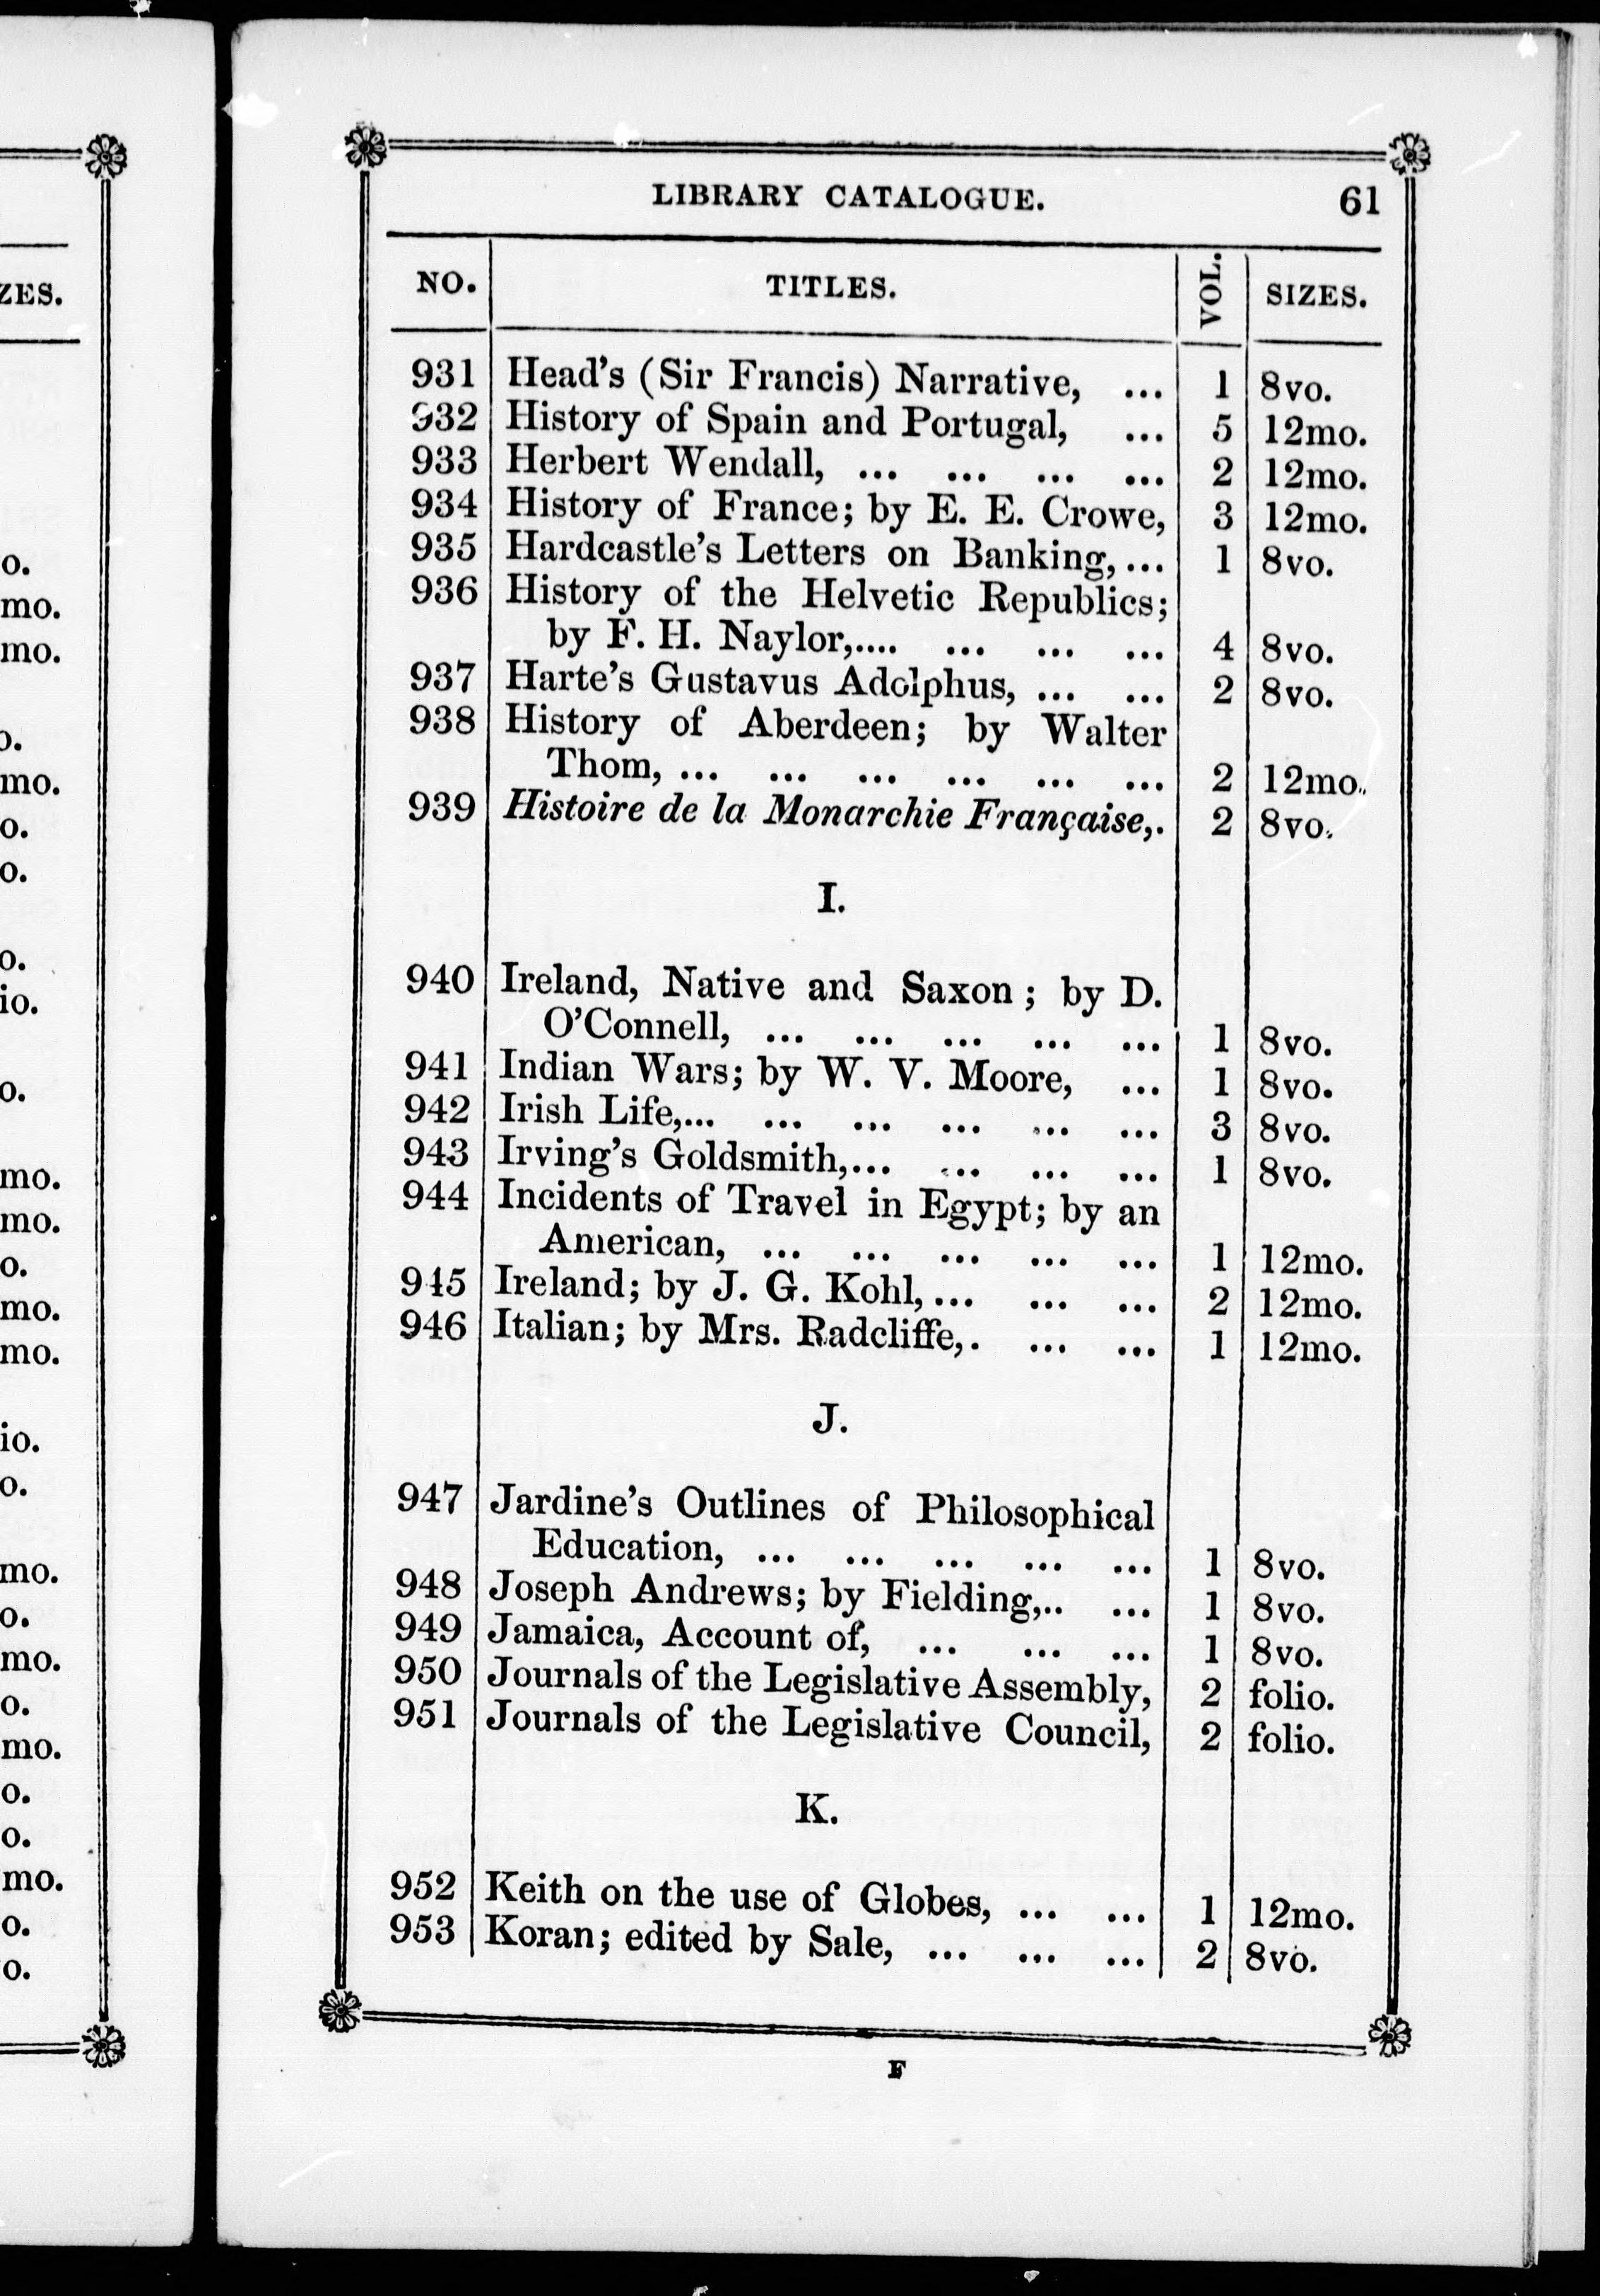 LIBRARY CATALOGUE. 61
NO. TITLES. VOL. SIZES.
931 Head's (Sir Francis) Narrative, ... 1 8vo.
932 History of Spain and Portugal, ... 5 12mo.
933 Herbert Wendall, ... ... ... ... 2 12mo.
934 History of France; by E. E. Crowe, 3 12mo.
935 Hardcastle's Letters on Banking,... 1 8vo.
936 History of the Helvetic Republics;
by F. H. Naylor,.... ... ... ... 4 8vo.
937 Harte's Gustavus Adolphus, ... ... 2 8vo.
938 History of Aberdeen; by Walter
Thom, ... ... ... ... ... ... 2 12mo.
939 Histoire de la Monarchie Française,. 2 8vo.
I.
940 Ireland, Native and Saxon; by D.
O'Connell, ... ... ... ... ... 1 8vo.
941 Indian Wars; by W. V. Moore, ... 1 8vo.
942 Irish Life,... ... ... ... ... ... 3 8vo.
943 Irving's Goldsmith,... ... ... ... 1 8vo.
944 Incidents of Travel in Egypt; by an
American, ... ... ... ... ... 1 12mo.
945 Ireland; by J. G. Kohl,... ... ... 2 12mo.
946 Italian; by Mrs. Radcliffe,. ... ... 1 12mo.
J.
947 Jardine's Outlines of Philosophical
Education, ... ... ... ... ... 1 8vo.
948 Joseph Andrews; by Fielding,.. ... 1 8vo.
949 Jamaica, Account of, ... ... ... 1 8vo.
950 Journals of the Legislative Assembly, 2 folio.
951 Journals of the Legislative Council, 2 folio.
K.
952 Keith on the use of Globes, ... ... 1 12mo.
953 Koran; edited by Sale, ... ... ... 2 8vo.
F